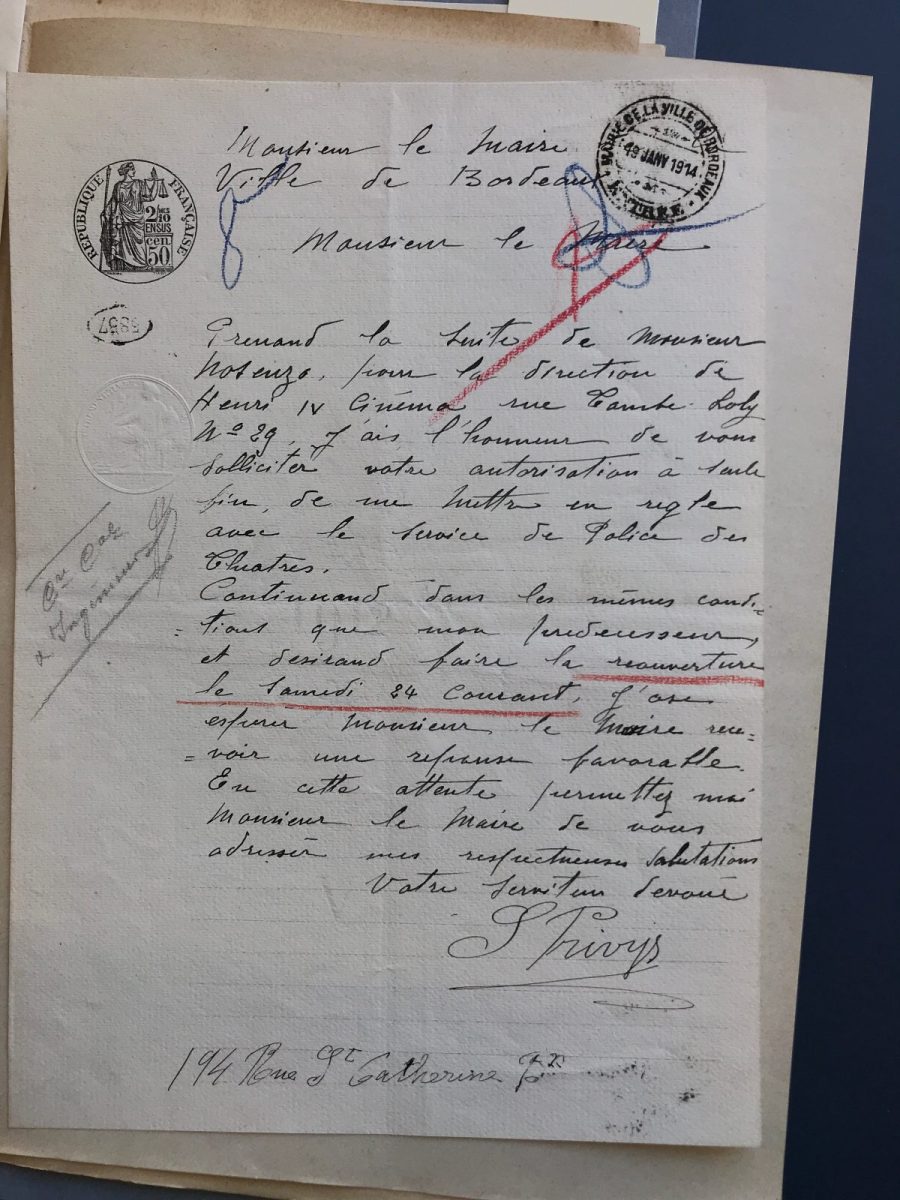 Monsieur le Maire
Ville de Bordeaux
MAIRIE DE LA VILLE DE BORDEAUX
19 JANV 1914
REPUBLIQUE FRANÇAISE
2/10
EN SUS
50 cen.
Monsieur le Maire
5857
Prenand la suite de Monsieur
Nosenzo, pour la direction de
Henri IV Cinéma rue Combe-Loly
Nº 29, J'ais l'honneur de vous
solliciter votre autorisation à seule
fin, de me mettre en regle
avec le service de Police des
Theatres.
Continuand dans les mêmes condi-
=tions que mon predecesseur,
et desirand faire la reouverture
le Samedi 24 Courant, J'ose
esperer Monsieur le Maire rece-
=voir une reponse favorable.
En cette attente permettez moi
Monsieur le Maire de vous
adresser mes respectueuses salutations
Votre serviteur devoué
S Privys
194 Rue St Catherine Bx